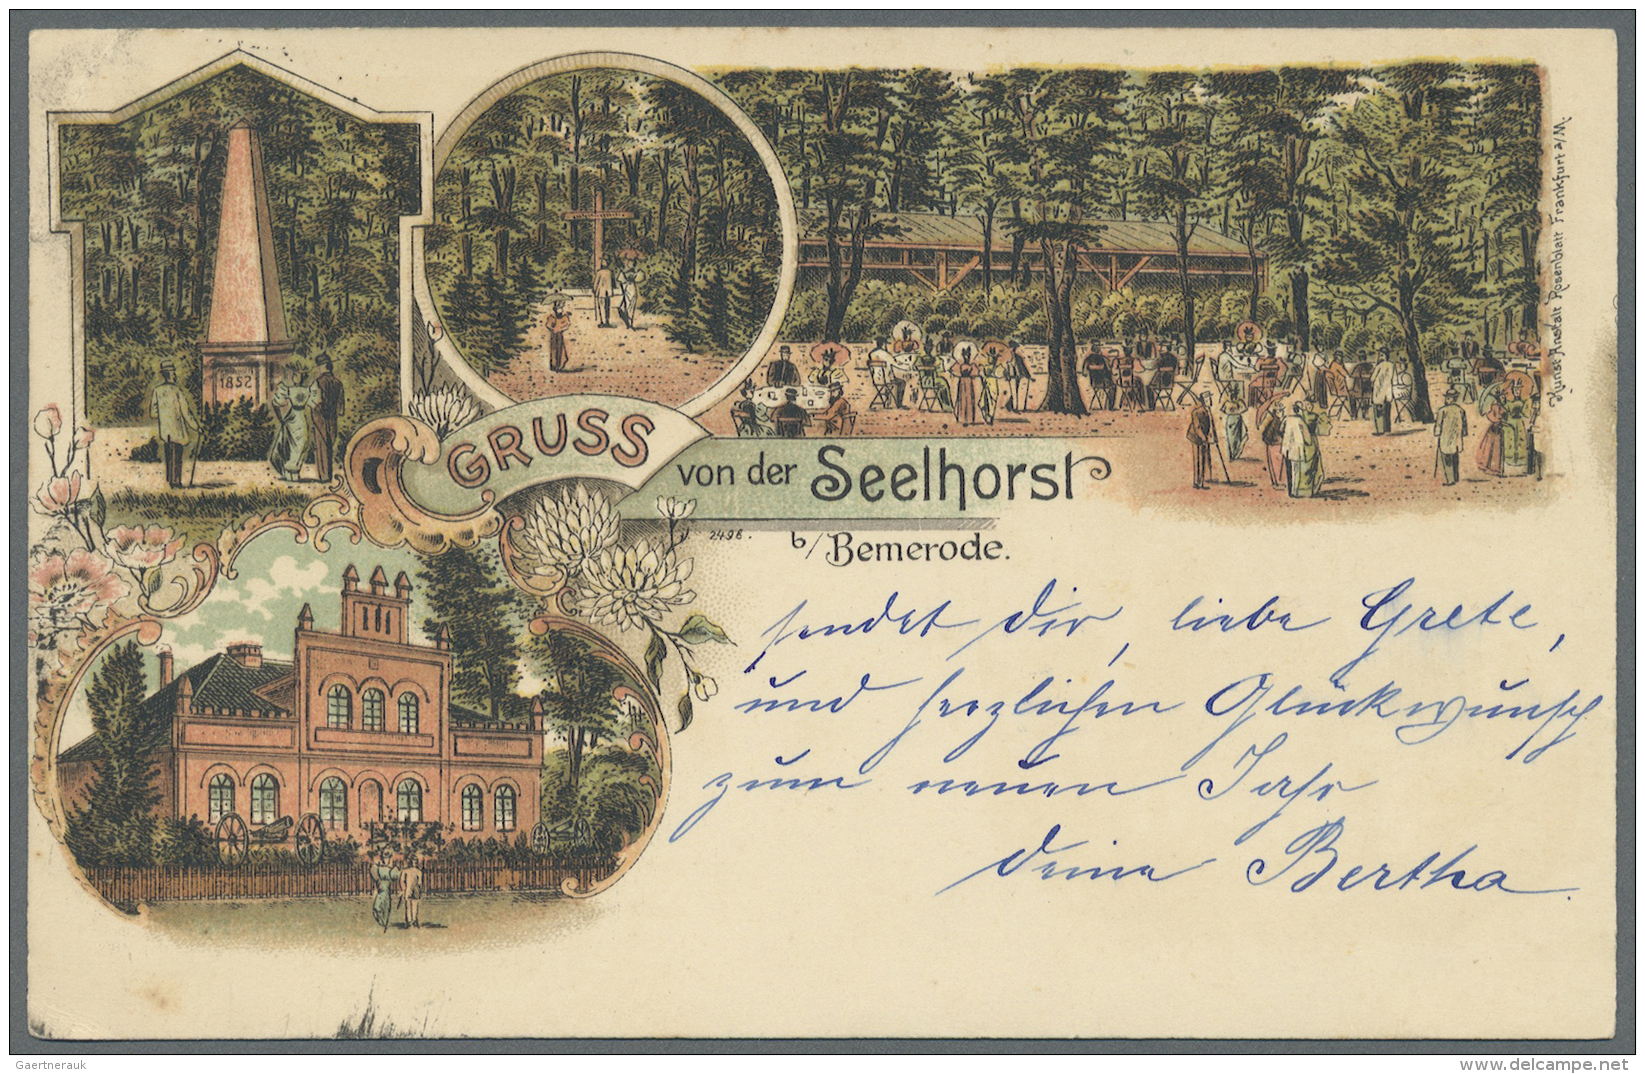 1852
GRUSS
von der Seelhorst
2496.
b/Bemerode.
Kunst Anstalt Rosenblatt Frankfurt a/M.
sendet dir, liebe Grete,
und herzlichen Glückwunsch
zum neuen Jahr
deine Bertha.
Gaertnerauk
www.delcampe.net